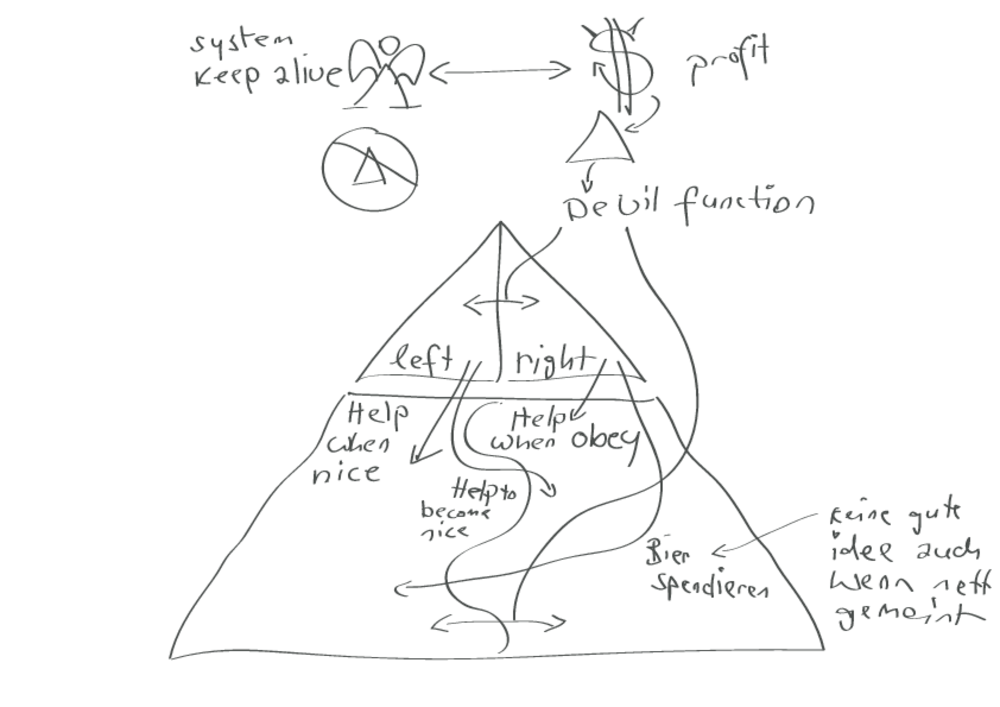 system
keep alive
profit
Devil function
left
right
Help
when
nice
Help
when obey
Help to
become
nice
Bier
spendieren
keine gute
idee auch
wenn nett
gemeint